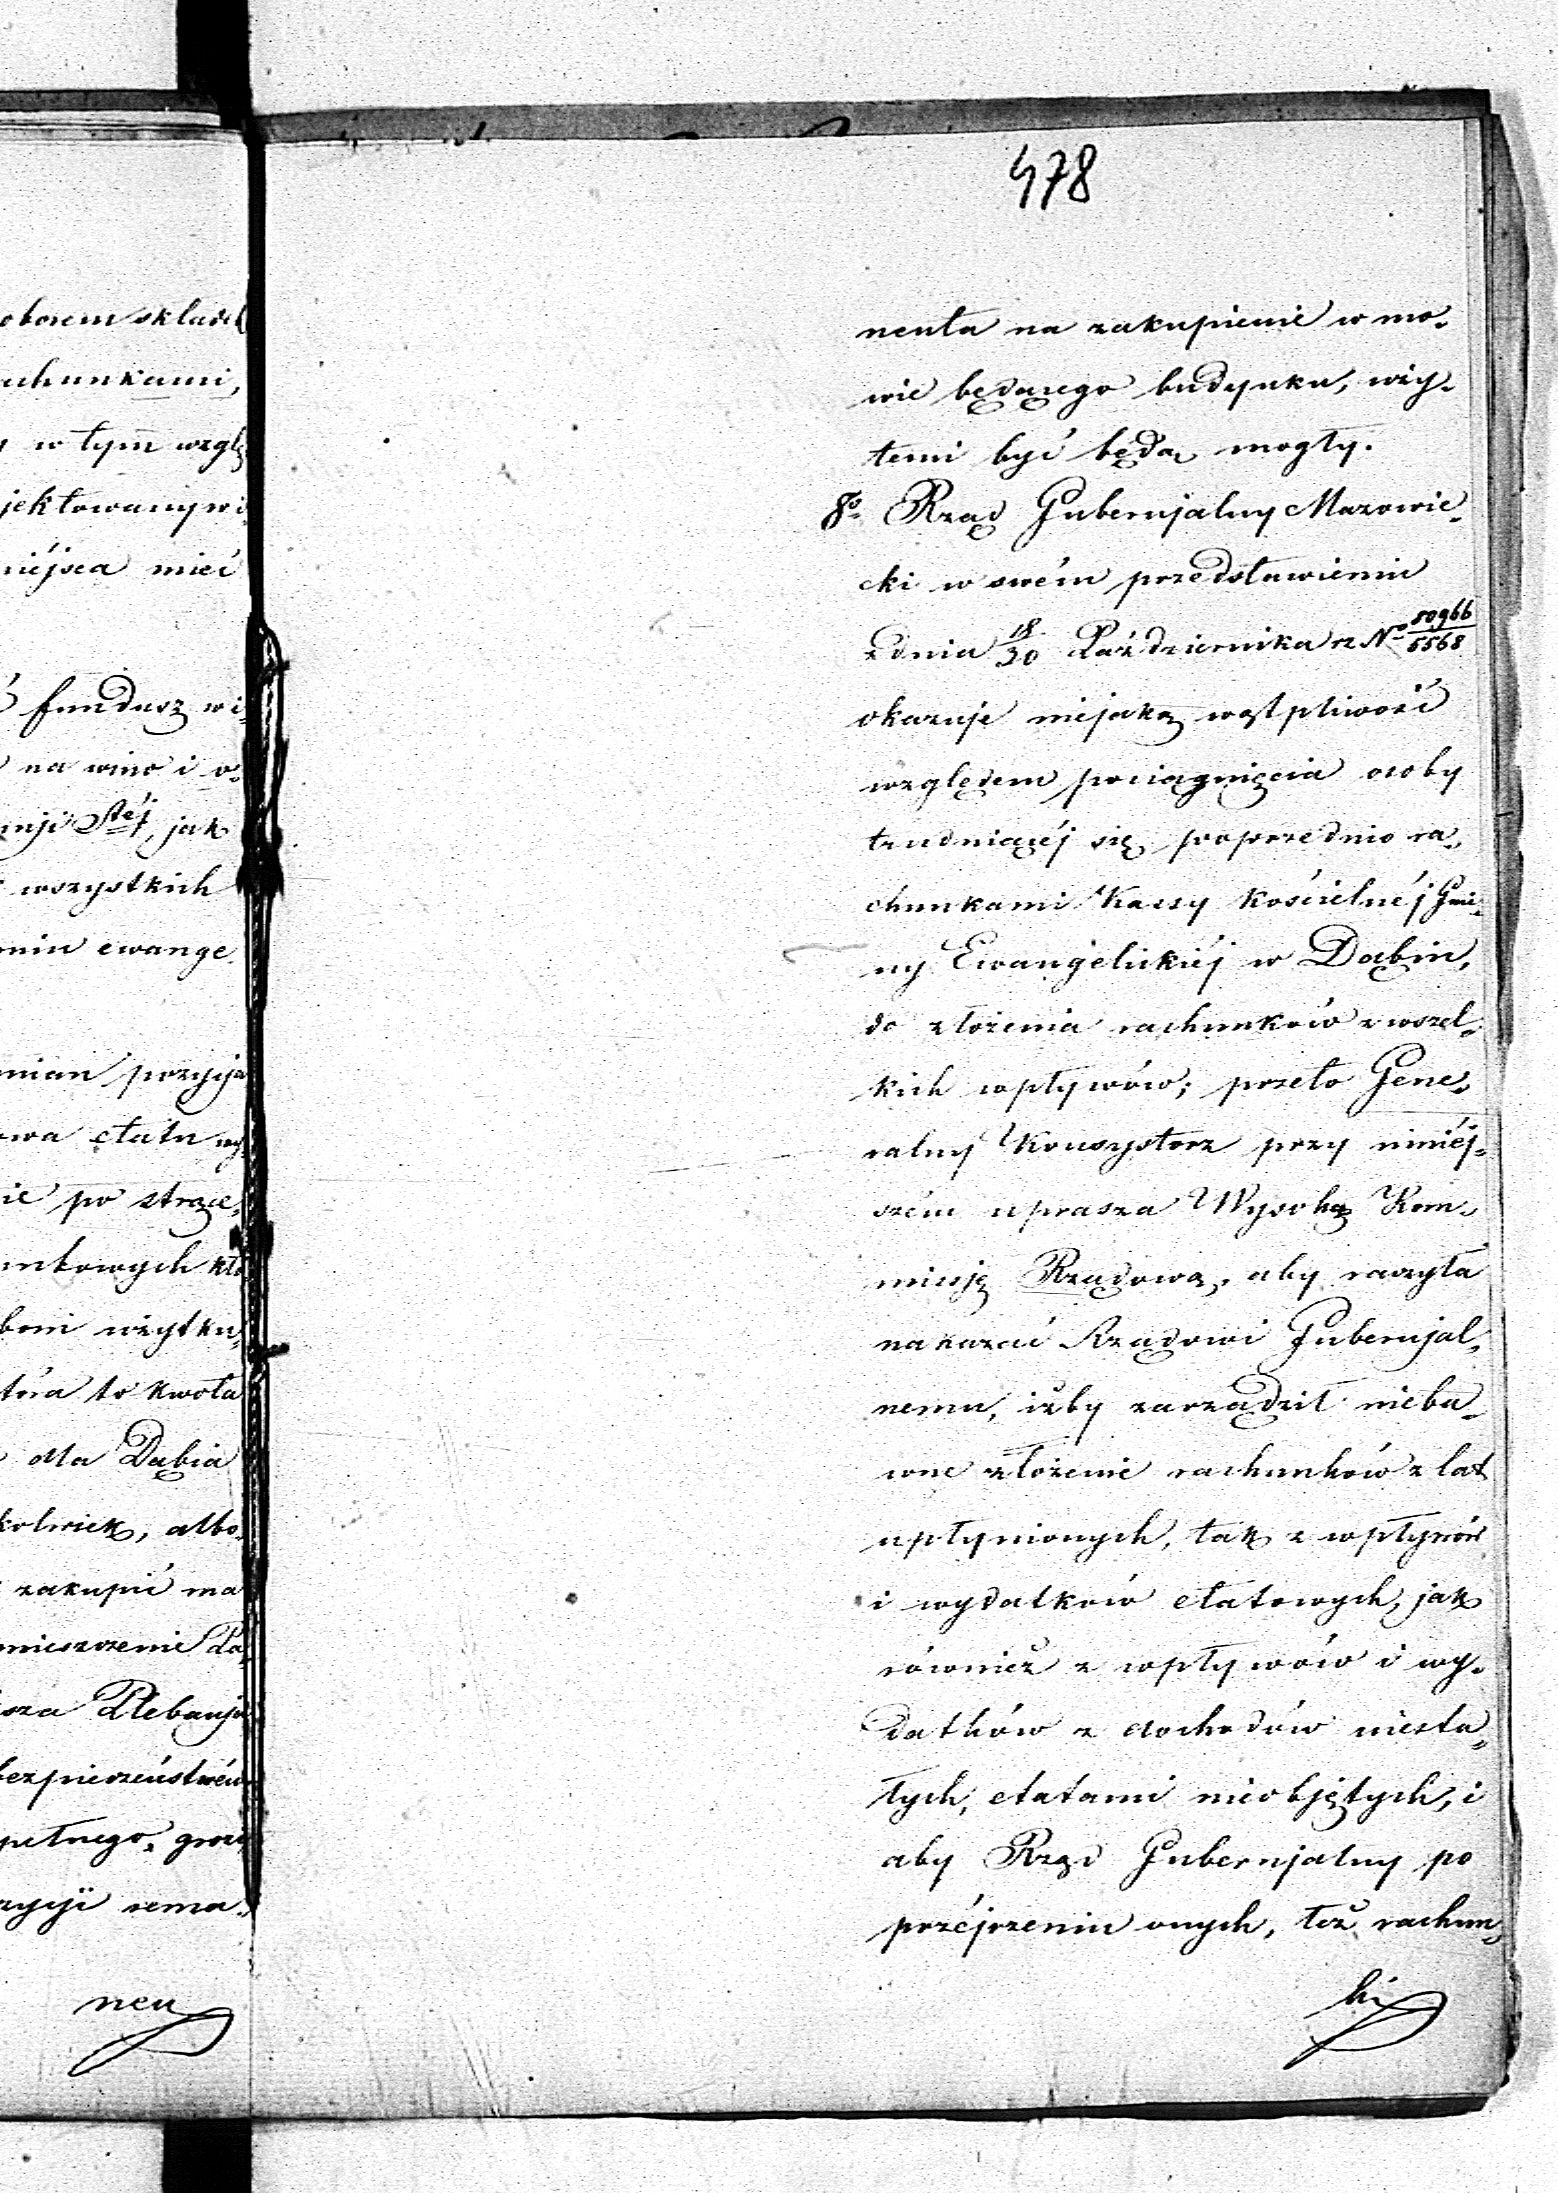 478
oborem składek
achunkami,
w tym wzglę
jektowany wi
miejsca mieć
fundusz wi
na wino i o
nji Stéj, jak
wszystkich
min ewange
mian pozycja
owa etatu wy
ie po strące,
unkowych któ
bom użytku
tóra to kwota
dla Dąbia
kolwiek, albo
zakupić ma
mieszczenie Pa
sza Plebanja
bezpieczeństwém
pełnego, grozi
zycyi rema
nen
nenta na zakupienie w mo-
wie będącego budynku, uży-
temi być będą mogły.
8o Rząd Gubernjalny Mazowie-
cki w swém przedstawieniu
z dnia 18/30 Października z No 50966/5568
okazuje niejaką wątpliwość
względem pociągnięcia osoby
trudniącéj się poprzednio ra-
chunkami Kassy Kościelnéj Gmi-
ny Ewangelickiéj w Dąbiu,
do złożenia rachunków z wszel-
kich wpływów; przeto Gene-
ralny Konsystorz przy niniéj-
szém uprasza Wysoką Kom-
missję Rządową, aby raczyła
nakazać Rządowi Gubernjal-
nemu, iżby zarządził nieba-
wne złożenie rachunków z lat
upłynionych, tak z wpływów
i wydatków etatowych, jak
również z wpływów i wy-
datków z dochodów niesta-
łych, etatami nieobjętych, i
aby Rząd Gubernjalny po
przéjrzeniu onych, też rachun-
ki